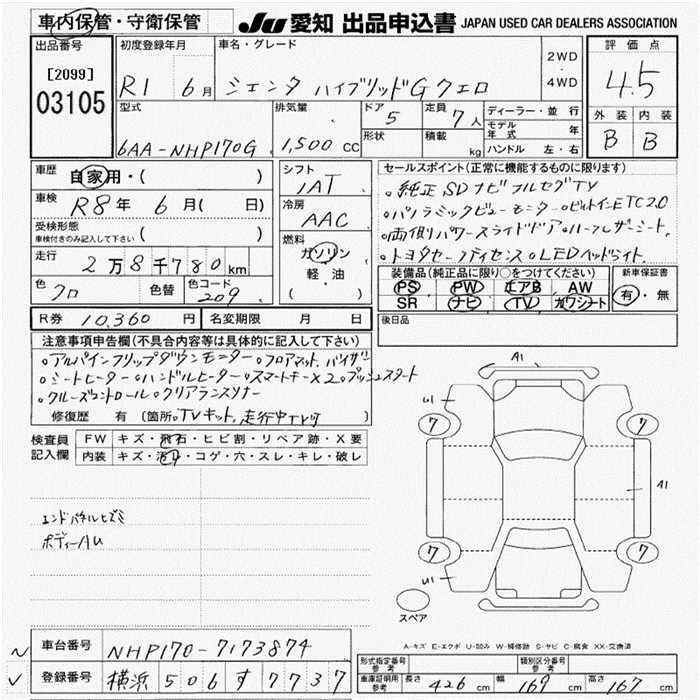 車内保管・守衛保管 JU 愛知 出品申込書 JAPAN USED CAR DEALERS ASSOCIATION
出品番号 初度登録年月 車名・グレード 評価点
[2099] R1 6月 シエンタ ハイブリッドG クエロ 2WD 4.5
03105 4WD
型式 排気量 ドア 定員 ディーラー・並行 外装 内装
5 7人 モデル年式 年 B B
6AA-NHP170G 1,500 cc 形状 積載 kg ハンドル 左・右
車歴 自家用・( ) シフト セールスポイント(正常に機能するものに限ります)
IAT 。純正SDナビフルセグTV
車検 R8年 6月( 日) 冷房 。パノラミックビューモニター。ビルトインETC2.0
受検形態 AAC 。両側パワースライドドア。ハーフレザーシート
車検付きのみ記入して下さい ( ) 燃料 。トヨタセーフティセンス。LEDヘッドライト
走行 2万8千780km ガソリン 装備品(純正品に限り○をつけてください) 新車保証書
軽・油 PS PW エアB AW 有・無
色 クロ 色替 色コード 209 ( ) SR ナビ TV カワシート
R券 10,360円 名変期限 月 日 後日品
注意事項申告欄(不具合内容等は具体的に記入して下さい)
。アルパインフリップダウンモニター。フロアマット、バイザー
。シートヒーター。ハンドルヒーター。スマートキー×2。プッシュスタート
。クルーズコントロール。クリアランスソナー
修復歴 有 (箇所。TVキット、走行中TV可
A1
U1
7 7
A1
7 7
U1
スペア
検査員 FW キズ・飛石・ヒビ割・リペア跡・X要
記入欄 内装 キズ・汚れ・コゲ・穴・スレ・キレ・破レ
エンドパネルヒズミ
ボディーAU
A-キズ E-エクボ U-凹み W-補修跡 S-サビ C-腐食 XX-交換済
車台番号 NHP170-7173874
登録番号 横浜 506 す 7737
形式指定番号 参考 類別区分番号 参考
車庫証明用 参考 長さ 426 cm 幅 169 cm 高さ 167 cm